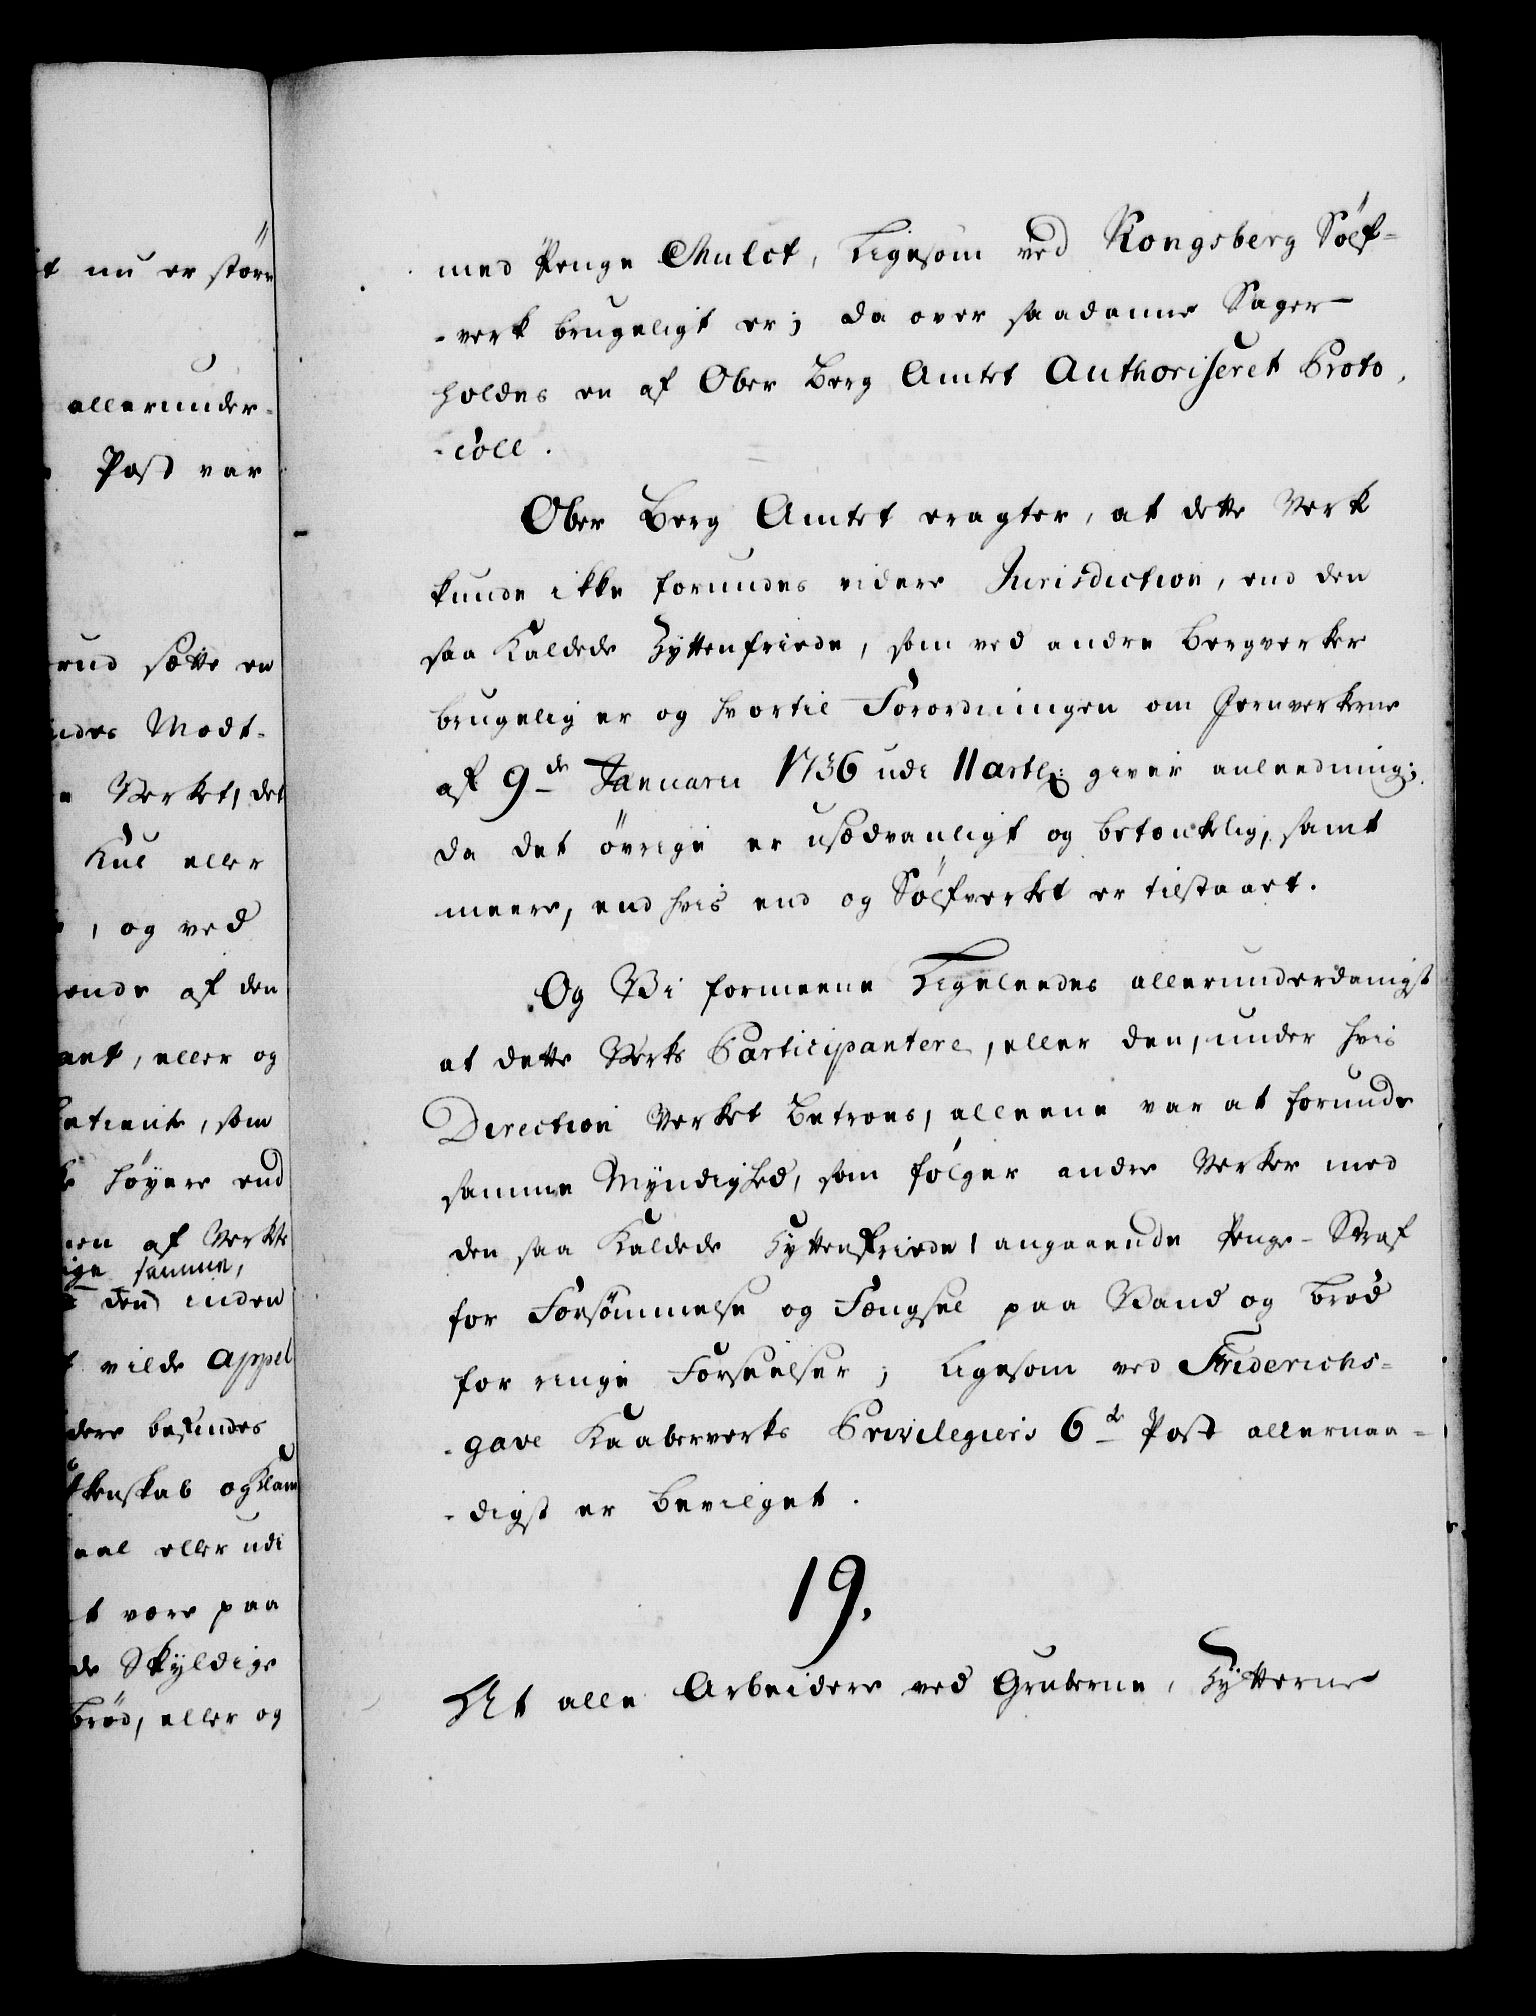 t nu er større
allerunder-
Post var
sætte en
Modt-
Verket, det
Kul eller
, og ved
af den
, eller og
, som
høyere end
af Verkte
samme,
den inden
vilde Appel
befindes
og
eller udi
t være paa
de Skyldige
brød, eller og
med Penge Mulct, Ligesom ved Kongsberg Sølf-
-verk brugeligt er; da over saadanne Sager
holdes en af Ober Berg Amtet Authoriseret Proto,
-coll.
Ober Berg Amtet eragter, at dette Verk
kunde ikke forundes videre Jurisdiction, end den
saa Kaldede Hyttenfriede, som ved andre Bergverker
brugelig er og hvortil Forordningen om Jernverkerne
af 9de Januarii 1736 udi 11 artl: giver anleedning;
da det øvrige er usædvanligt og betænkelig, samt
meere, end hvis end og Sølfverket er tilstaaet.
Og Vi formeene Ligeleedes allerunderdanigst
at dette Verks Participantere, eller den, under hvis
Direction Verket Betroes, alleene var at forunde
samme Myndighed, som følger andre Verker med
den saa Kaldede Hyttenfriede, angaaende Penge-Straf
for Forsømmelse og Fængsel paa Vand og brød
for ringe Forseelser; Ligesom ved Friderichs-
-gave Kaaberverks Privilegiers 6te Post allernaa-
-digst er bevilget.
19.
At alle Arbeidere ved Gruberne, Hytterne